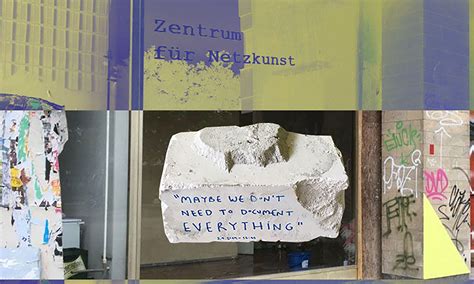 Zentrum
für Netzkunst
"MAYBE WE DON'T
NEED TO DOCUMENT
EVERYTHING"